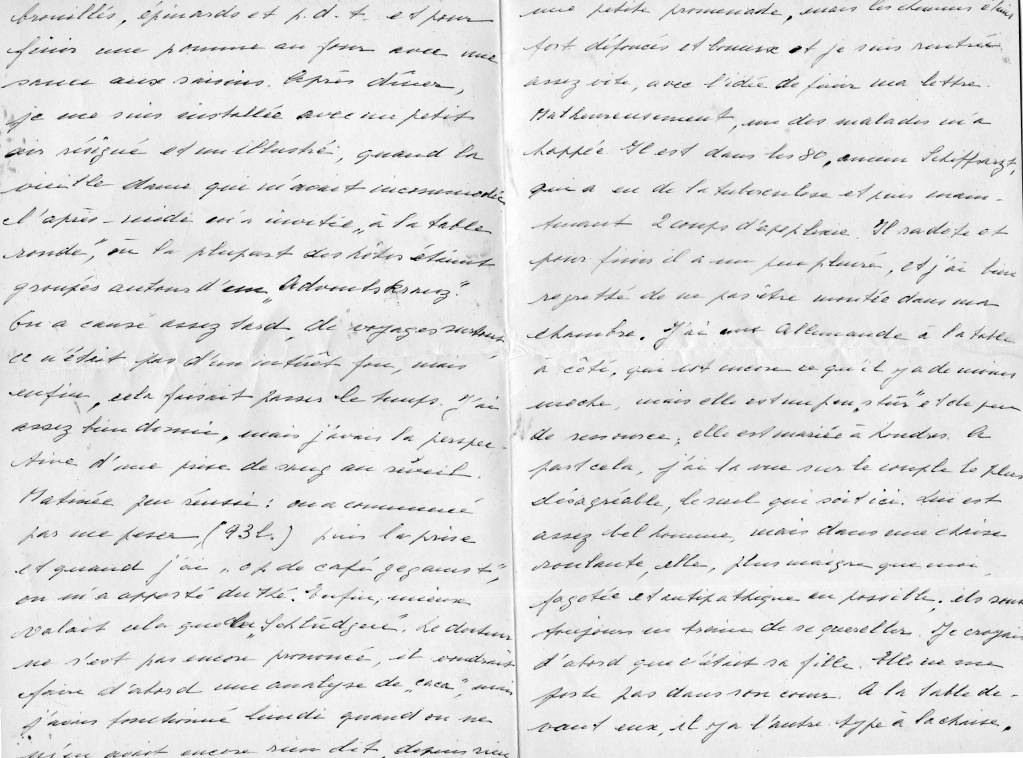 brouillés, épinards et p. d. t. et pour
finir une pomme au four avec une
sauce aux raisins. Après dîner,
je me suis installée avec un petit
air résigné et un illustré, quand la
vieille dame qui m'avait incommodée
l'après-midi m'a invitée „à la table
ronde", où la plupart des hôtes étaient
groupés autour d'un „Adventskranz".
On a causé assez tard, de voyages surtout
ce n'était pas d'un intérêt fou, mais
enfin, cela faisait passer le temps. J'ai
assez bien dormi, mais j'avais la perspec-
tive d'une prise de sang au réveil.
Matinée peu réussie: on a commencé
par me peser (93 l.) puis la prise
et quand j'ai „op de café geganst",
on m'a apporté du thé. Enfin, mieux
valait cela que le „Schlüdgen". Le docteur
ne s'est pas encore prononcé, il voudrait
faire d'abord une analyse de „caca", mais
j'avais fonctionné lundi quand on ne
m'en avait encore rien dit, depuis rien
une petite promenade, mais les chemins étaient
fort défoncés et boueux et je suis rentrée
assez vite, avec l'idée de finir ma lettre.
Malheureusement, un des malades m'a
happée. Il est dans les 80, ancien Schiffsarzt,
qui a eu de la tuberculose et puis main-
tenant 2 coups d'apoplexie. Il radote et
pour finir il a un peu pleuré, et j'ai bien
regretté de ne pas être montée dans ma
chambre. J'ai une Allemande à la table
à côté, qui est encore ce qu'il y a de moins
moche, mais elle est un peu „stür" et de peu
de ressource; elle est mariée à Londres. A
part cela, j'ai la vue sur le couple le plus
désagréable, le seul qui soit ici. Lui est
assez bel homme, mais dans une chaise
roulante, elle, plus maigre que moi,
fagotée et antipathique au possible; ils sont
toujours en train de se quereller. Je croyais
d'abord que c'était sa fille. Elle ne me
porte pas dans son cœur. A la table de-
vant eux, il y a l'autre type à la chaise,